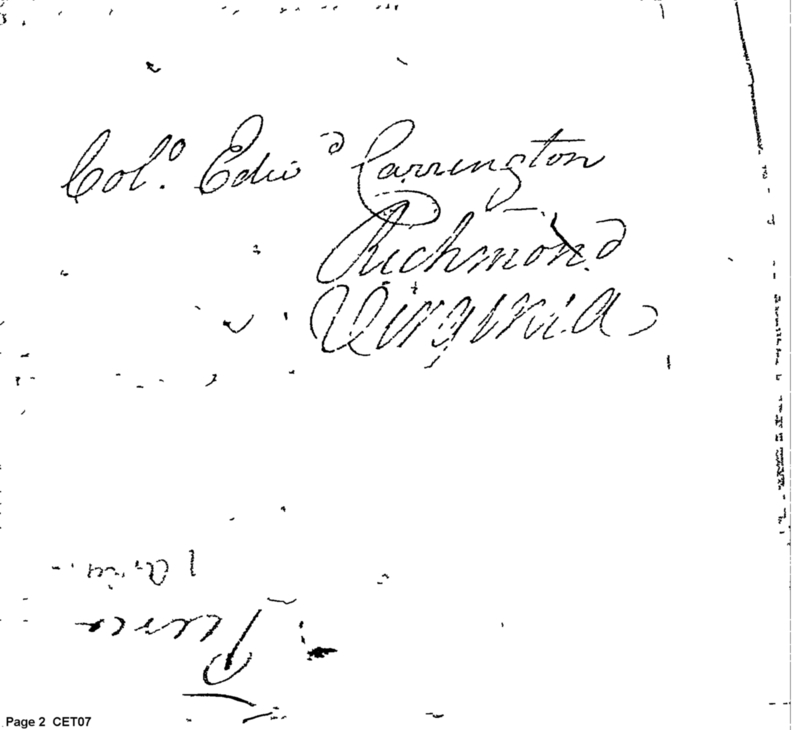 Col.º Edw.d Carrington
Richmond
Virginia
Page 2 CET07